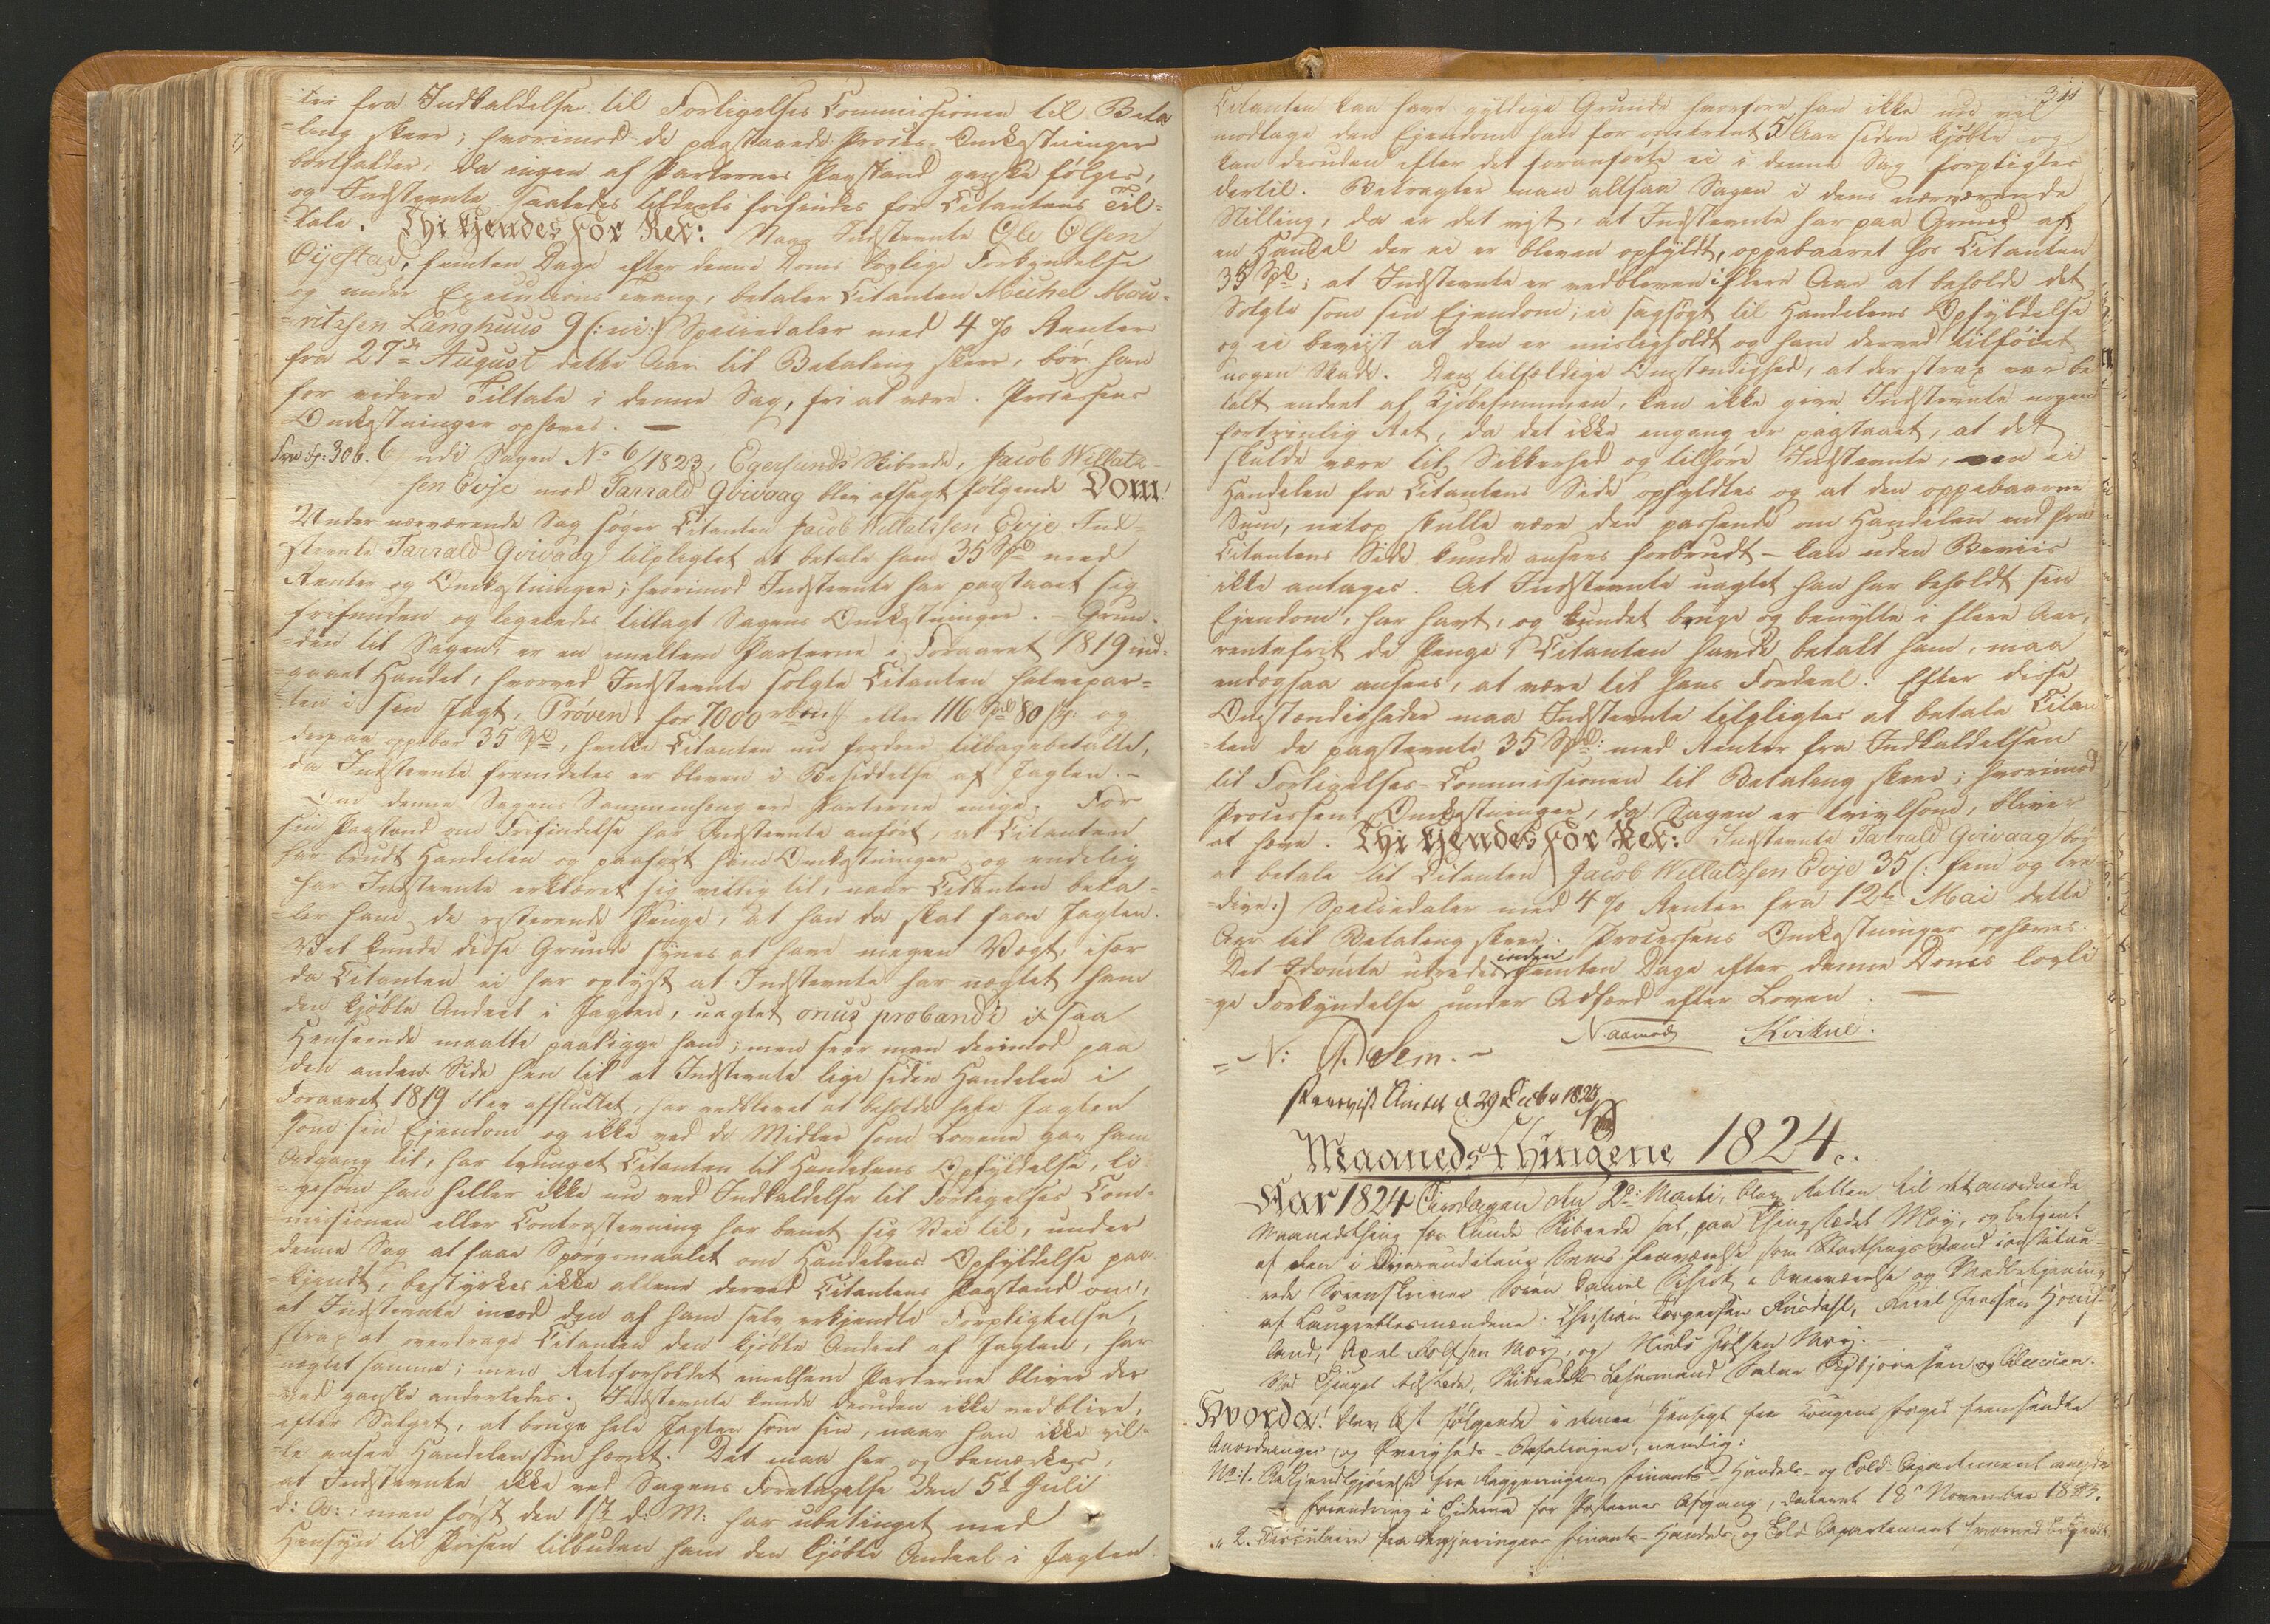 ter fra Indkaldelse til Forligelses Commissionen til Beta
-ling skeer; hvorimod de paastaaede Proces-Omkostninger
bortfalder, da ingen af Parternes Paastand ganske følges,
og Indstevnte saaledes tildeels frifindes for Citantens Til-
-tale. Thi kjendes for Ret: Naar Indstevnte Ole Olsen
Øijestad, femten Dage efter denne Doms lovlige Forkyndelse
og under Executions Tvang, betaler Citanten Michel Mau-
-ritzsen Langhuus 9 (: ni :) Speciedaler med 4 % Renter
fra 27de August dette Aar til Betaling skeer, bør han
for videre Tiltale i denne Sag, fri at være. Processens
Omkostninger ophæves. —
Fra S: 306. 6 udi Sagen No 6/1823, Egersunds Skibrede, Jacob Willatz-
sen Evje mod Tarrald Gvivaag blev afsagt følgende Dom!
Under nærværende Sag søger Citanten Jacob Willatzsen Evje Ind-
stevnte Tarrald Gvivaag tilpligtet at betale ham 35 Spd med
Renter og Omkostninger; hvorimod Indstevnte har paastaaet sig
frifunden og ligeledes tillagt Sagens Omkostninger. - Grun-
-den til Sagen, er en imellem Parterne i Foraaret 1819 ind-
-gaaet Handel, hvorved Indstevnte solgte Citanten halvepar-
-ten i sin Jagt, Prøven, for 7000 eller 116 Spd 80 s: og
derpaa oppebar 35 Spd, hvilke Citanten nu fordrer tilbagebetalte,
da Indstevnte fremdeles er bleven i Besiddelse af Jagten. -
denne Sagens Sammenhæng ere Parterne enige. For
sin Paastand om Frifindelse har Indstevnte anført, at Citanten
har brudt Handelen og paaført ham Omkostninger og endelig
har Indstevnte erklæret sig villig til, naar Citanten beta-
-ler ham de resterende Penge, at han da skal faae Jagten.
Vel kunde disse Grunde synes at have megen Vægt, især
da Citanten ei har oplyst at Indstevnte har nægtet ham
den kjøbte Andeel i Jagten, uagtet onus probandi i saa
Henseende maatte paaligge ham; men seer man derimod paa
den anden Side hen til at Indstevnte lige siden Handelen i
Foraaret 1819 blev afsluttet, har vedblevet at beholde hele Jagten
som sin Ejendom og ikke ved de Midler som Lovene gav ham
Adgang til, har tvunget Citanten til Handelens Opfyldelse, li-
-gesom han heller ikke nu ved Indkaldelse til Forligelses Com-
-missionen eller Contrastevning har banet sig Vei til, under
denne Sag at faae Spørgsmaalet om Handelens Opfyldelse paa-
-kjendt, bestyrkes ikke allene derved Citantens Paastand om,
at Indstevnte imod den af ham selv erkjendte Forpligtelse,
strax at overdrage Citanten den kjøbte Andeel af Jagten, har
nægtet samme; men Retsforholdet imellem Parterne bliver der
-ved ganske anderledes. Indstevnte kunde desuden ikke vedblive,
efter Salget, at bruge hele Jagten som sin, naar han ikke vil-
-le ansee Handelen som hævet. Det maa her og bemærkes,
at Indstevnte ikke ved Sagens Foretagelse den 5te Juli
d: A:, men først den 17de d: M: har ubetinget med
Hensyn til Prisen tilbuden ham den kjøbte Andeel i Jagten
311
Citanten kan have gyldige Grunde hvorfore han ikke nu vil
modtage den Ejendom han for omtrent 5 Aar siden kjøbte og
kan desuden efter det foranførte ei i denne Sag forpligtes
dertil. Betragter man altsaa Sagen i dens nærværende
Stilling, da er det vist, at Indstevnte har paa Grund af
en Handel der ei er bleven opfyldt, oppebaaret hos Citanten
35 Spd; at Indstevnte er vedbleven i flere Aar at beholde det
Solgte som sin Ejendom; ei sagsøgt til Handelens Opfyldelse
og ei beviist at den er misligholdt og ham derved tilføiet
nogen Skade. Den tilfældige Omstændighed, at der strax var be
talt endeel af Kjøbesummen, kan ikke give Indstevnte nogen
fortrinlig Ret, da det ikke engang er paastaaet, at det
skulde være til Sikkerhed og tilhøre Indstevnte, ei
Handelen fra Citantens Side opfyldtes og at den oppebaarne
Sum, netop skulle være den passende om Handelen end fra
Citantens Side kunde ansees forbrudt - kan uden Beviis
ikke antages. At Indstevnte uagtet han har beholdt sin
Ejendom, har havt, og kundet bruge og benytte i flere Aar,
rentefrit de Penge Citanten havde betalt ham, maa
endogsaa ansees, at være til hans Fordeel. Efter disse
Omstændigheder maa Indstevnte tilpligtes at betale Citan
-ten de paastevnte 35 Spd: med Renter fra Indkaldelsen
til Forligelses-Commissionen til Betaling skeer; hvorimod
Processens Omkostninger, da Sagen er tvivlsom, bliver
at hæve. Thi kjendes for Ret: Indstevnte Tarrald Gvivaag bør
at betale til Citanten Jacob Willatzsen Evje 35 (: fem og tre
-dive :) Speciedaler med 4 % Renter fra 12te Mai dette
Aar til Betaling skeer. Processens Omkostninger ophæves.
Det Idømte udredes inden femten Dage efter denne Doms lovli
-ge Forkyndelse under Adfærd efter Loven. —
Feldtmann. Kvikne.
1824
Maanedsthingene 1824.
Aar 1824 Tirsdagen den 2de Marti, blev Retten til det anordnede
Maanedsthing for Lunde Skibrede sat, paa Thingstedet Moy, og betjent
af den i Fraværelse som Storthings Mand constitue-
-rede Sorenskriver Søren Daniel Schiøtz i Overværelse og Medbetjening
af Laugrettesmændene: Christian Torgersen Rusdahl, Hans-
land, Axel Moy, og Niels Moy. —
Ved Thinget tilstede, Skibredets Lehnsmand Asbjørnsen og Almuen.
Hvorda! blev læst følgende i denne Henseende fra Kongens Foged fremsendte
Anordninger og Øvrigheds-Befalinger, nemlig:
No: 1. Bekjendtgjørelse fra Regjeringens Finants- Handels- og Told Departement angaaende
Forandring i Tiderne for Posternes Afgang, dateret 18de November 1823.
" 2. Circulaire fra Regjeringens Finants- Handels- og Told Departement hvorved